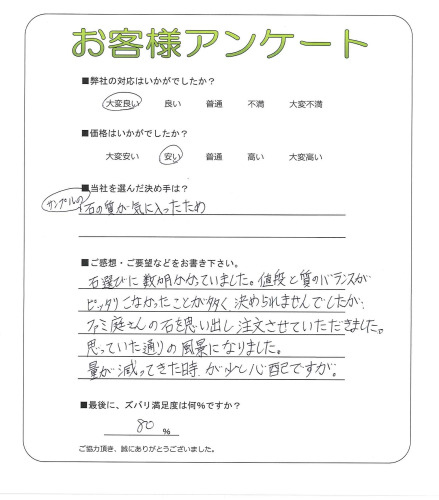 お客様アンケート
■弊社の対応はいかがでしたか?
大変良い 良い 普通 不満 大変不満
■価格はいかがでしたか?
大変安い 安い 普通 高い 大変高い
■当社を選んだ決め手は?
サンプルの
石の質が気に入ったため
■ご感想・ご要望などをお書き下さい。
石選びに数か月かかっていました。値段と質のバランスが
ピッタリこなかったことが多く、決められませんでしたが、
ファミ庭さんの石を思い出し注文させていただきました。
思っていた通りの風景になりました。
量が減ってきた時が少し心配ですが。
■最後に、ズバリ満足度は何%ですか?
80 %
ご協力頂き、誠にありがとうございました。